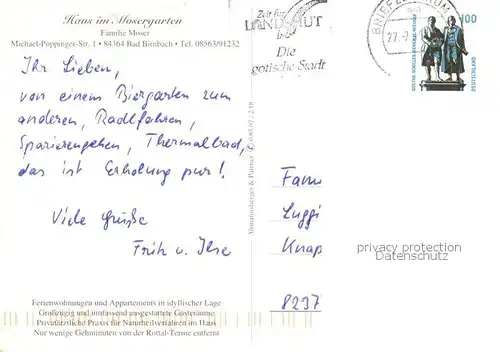 Haus im Mosergarten
Familie Moser
Michael-Poppinger-Str. 1 • 84364 Bad Birnbach • Tel. 08563/91232
Zeit für
LANDSHUT
Die
gotische Stadt
BRIEFZENTRUM
27.-7
100
GOETHE-SCHILLER-DENKMAL WEIMAR
DEUTSCHLAND
Ihr Lieben,
von einem Biergarten zum
anderen, Radlfahren,
Spazierengehen, Thermalbad,
das ist Erholung pur!
Viele Grüße
Fritz u. Ilse
Fam
Luggi
Knap
8297
privacy protection
Datenschutz
Ferienwohnungen und Appartements in idyllischer Lage
Großzügig und umfassend ausgestattete Gästeräume
Privatärztliche Praxis für Naturheilverfahren im Haus
Nur wenige Gehminuten von der Rottal-Terme entfernt